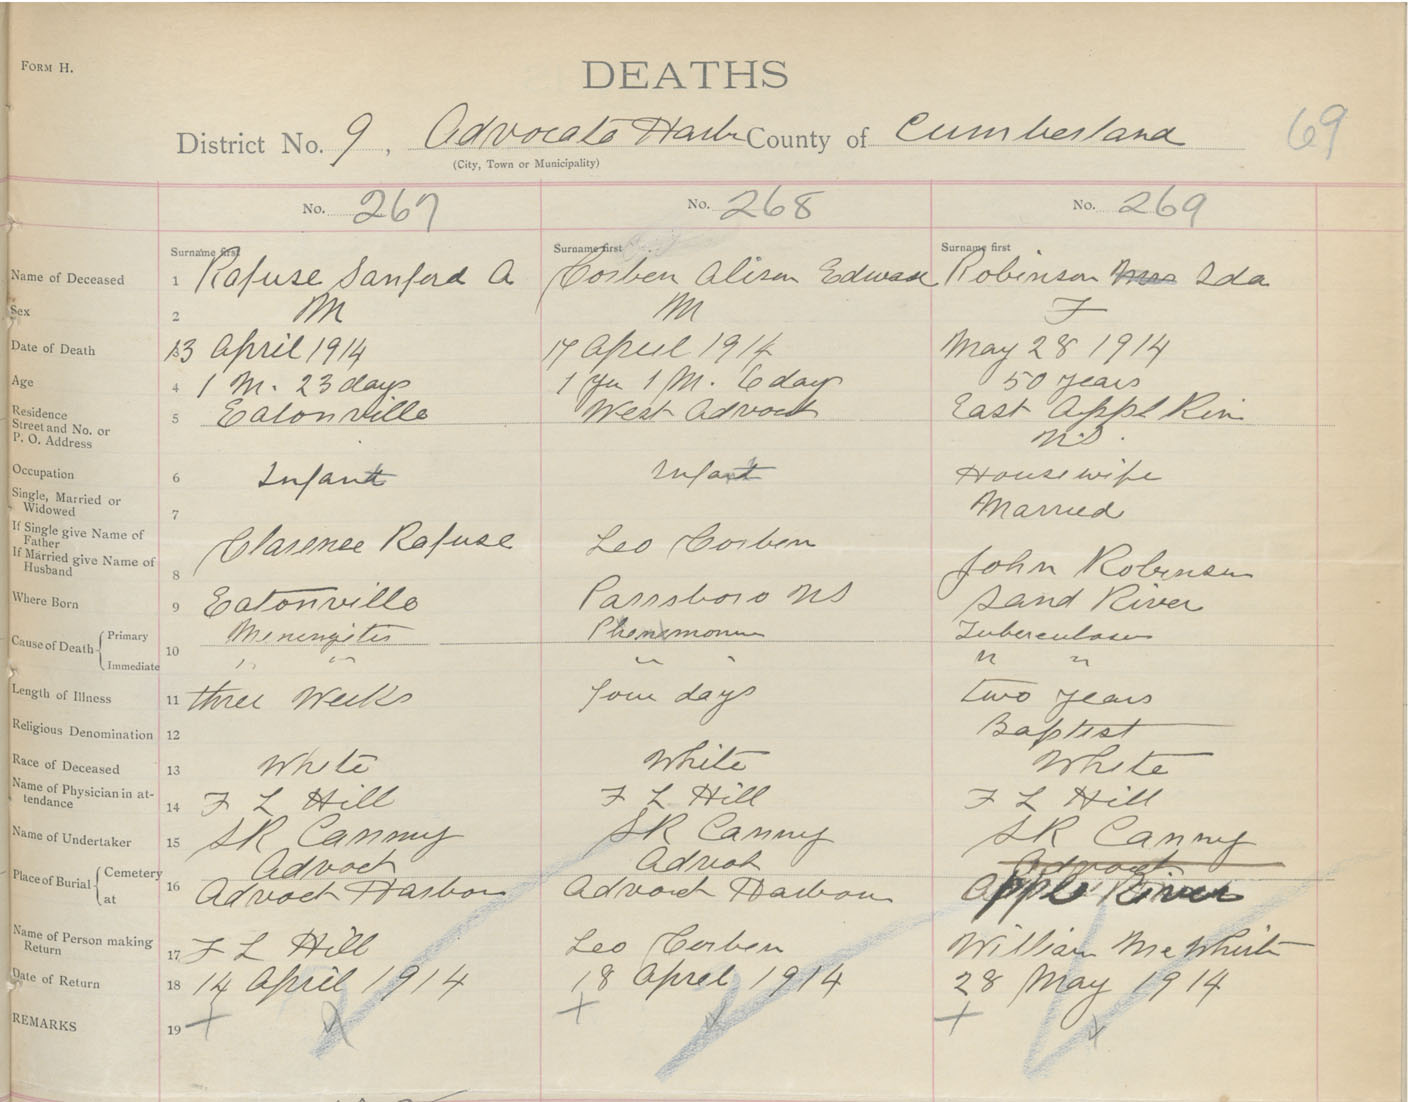 FORM H.
DEATHS
69
District No. 9, Advocate Harbr County of Cumberland
(City, Town or Municipality)
No. 267 No. 268 No. 269
Surname first Surname first Surname first
Name of Deceased 1 Rafuse Sanford A Corben Alison Edward Robinson Mrs Ida
Sex 2 M M F
Date of Death 3 13 April 1914 17 April 1914 May 28 1914
Age 4 1 M. 23 days 1 yr 1 M. 6 day 50 years
Residence
Street and No. or
P. O. Address 5 Eatonville West Advoct East Appl Riv
N.S.
Occupation 6 Infant Infant Housewife
Single, Married or
Widowed 7 Married
If Single give Name of
Father
If Married give Name of
Husband 8 Clarence Rafuse Leo Corben John Robinson
Where Born 9 Eatonville Parrsboro NS Sand River
Cause of Death Primary 10 Meningites Tuberculosis
Immediate " " " " " "
Length of Illness 11 three Weeks four days two years
Religious Denomination 12 Baptist
Race of Deceased 13 White White White
Name of Physician in at-
tendance 14 F L Hill F L Hill F L Hill
Name of Undertaker 15 SR Canny SR Canny SR Canny
Place of Burial Cemetery 16 Advoct Advoct Advoct
at Advoct Harbour Advoct Harbour Apple River
Name of Person making
Return 17 F L Hill Leo Corben William McWhirt
Date of Return 18 14 April 1914 18 April 1914 28 May 1914
REMARKS 19